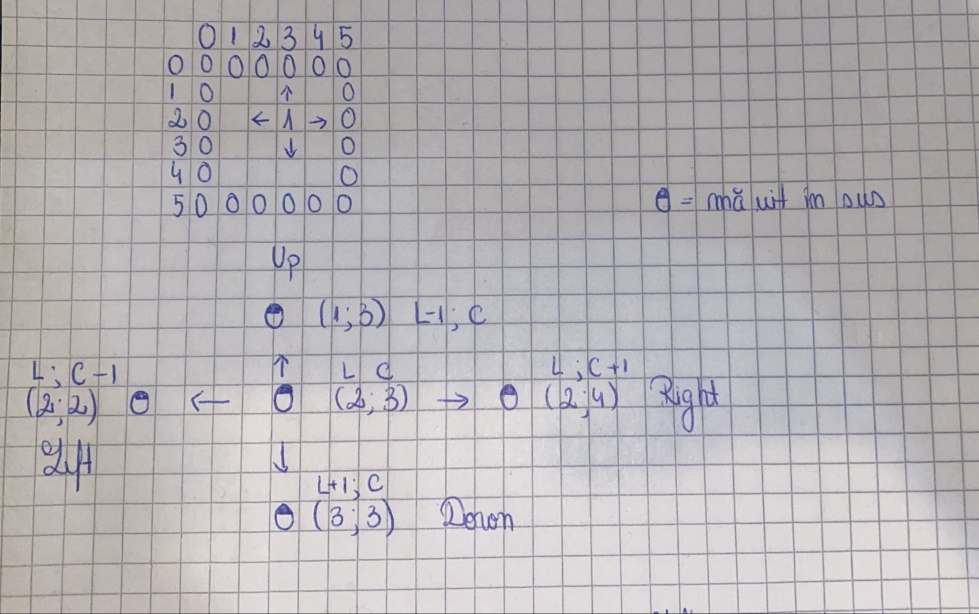 0 1 2 3 4 5
0 0 0 0 0 0 0
1 0 ↑ 0
2 0 ← 1 → 0
3 0 ↓ 0
4 0 0
5 0 0 0 0 0 0
θ = mă uit în sus
Up
(1;3) L-1; C
↑
L; C-1
L C
L; C+1
(2;2) ← (2;3) → (2;4) Right
Left
↓
L+1; C
(3;3) Down